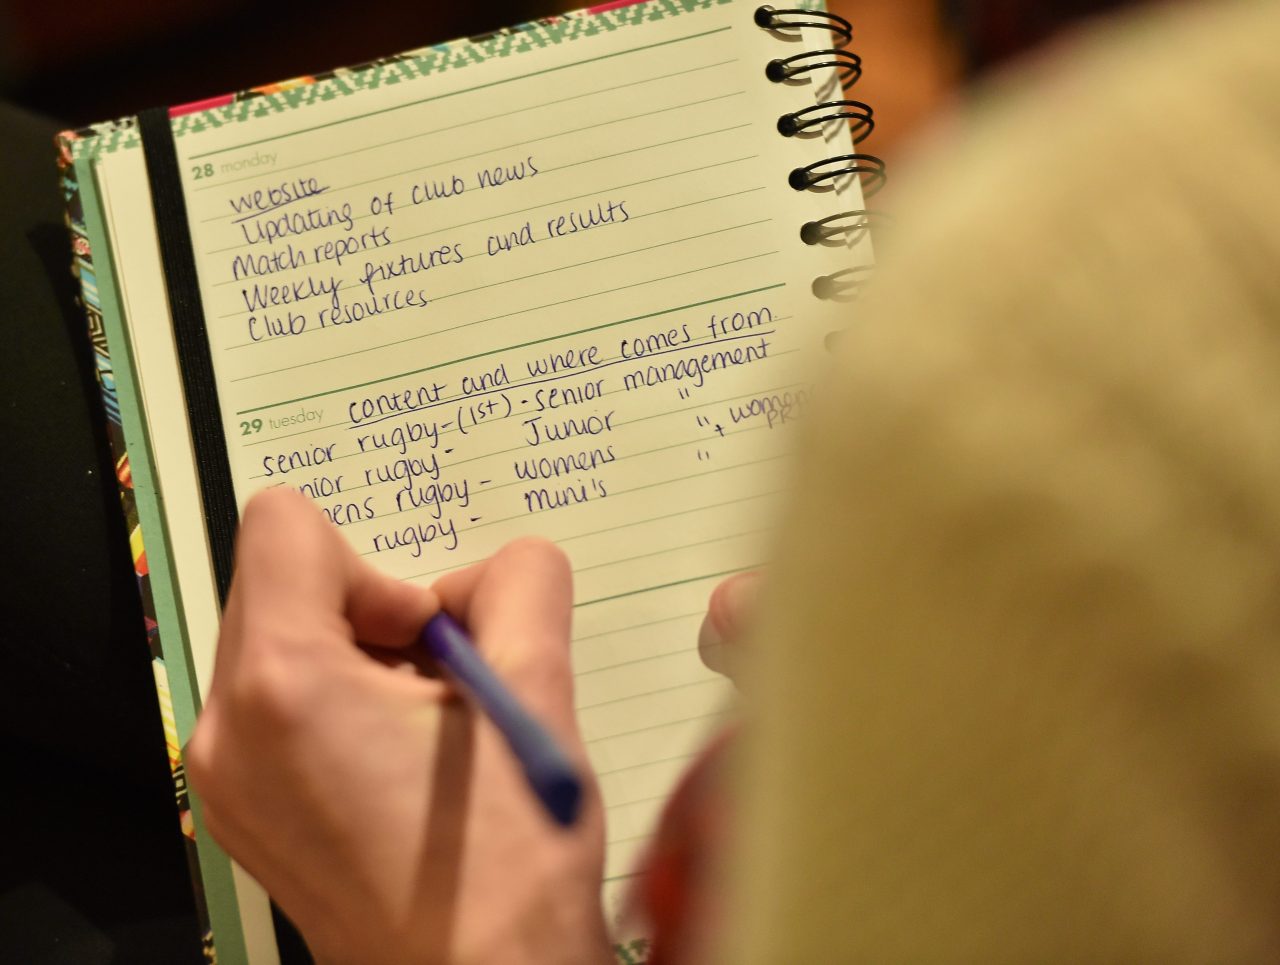 28 monday
website
Updating of club news
Match reports
Weekly fixtures and results
Club resources.
29 tuesday content and where comes from.
senior rugby-(1st)-senior management
nior rugby- Junior "
mens rugby - womens " + womens
rugby - mini's "